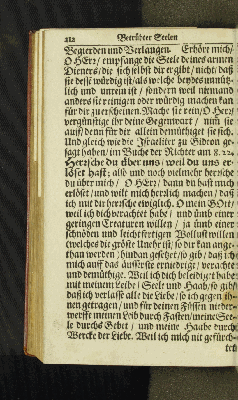 212 Betrübter Seelen
Begierden und Verlangen. Erhöre mich/
O HErr/ empfange die Seele deines armen
Dieners/ die sich selbst dir ergibt/ nicht/ daß
sie dessē würdig ist/ als welche beydes unnütz-
lich und unrein ist/ sondern weil niemand
anders sie reinigen oder würdig machen kan
für dir zu erscheinen. Mache sie rein/ O HErr/
vergünstige ihr deine Gegenwart/ nim sie
auff/ denn für dir allein demüthiget sie sich.
Und gleich wie die Israeliter zu Gideon ge-
sagt haben/ im Buche der Richter am 8. 22.
Hersche du über uns/ weil du uns er-
löset hast; also und noch vielmehr hersche
du über mich/ O HErr/ dann du hast mich
erlöset/ und wilt mich herzlich machen/ daß
ich mit dir hersche ewiglich. O mein GOtt/
weil ich dich verachtet habe/ und ümb einer
geringen Creaturen willen/ ja ümb einer
schnöden und leichtfertigen Wollust willen
welches die gröste Unehr ist/ so dir kan ange-
than werden/ hindan gesetzet/ so gib/ daß ich
mich auff das äusserste erniedrige/ verachte
und demüthige. Weil ich dich beleidiget habe
mit meinem Leibe/ Seele und Haab/ so gib/
daß ich verlasse alle die Liebe/ so ich gegen ih-
nen getragen/ und für deinen Füssen nieder-
werffe meinen Leib durch Fasten/ meine See-
le durchs Gebet/ und meine Haabe durch
Wercke der Liebe. Weil ich mich nit gefürch-